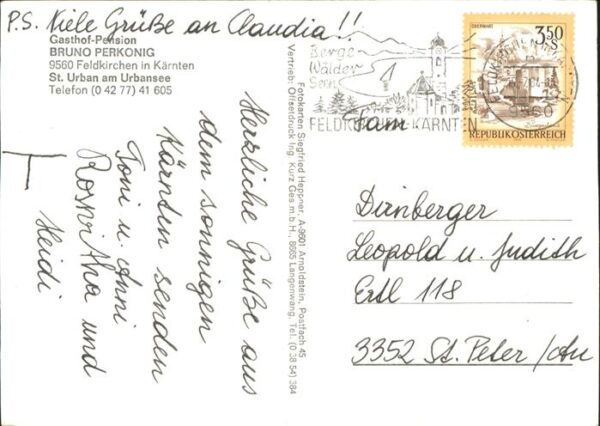 P.S. Viele Grüße an Claudia!!
Gasthof-Pension
BRUNO PERKONIG
9560 Feldkirchen in Kärnten
St. Urban am Urbansee
Telefon (0 42 77) 41 605
Herzliche Grüße aus
dem sonnigen
Kärnten senden
Toni u. Anni
Roswitha und
Heidi
Fotokarten Siegfried Heppner, A-9601 Arnoldstein, Postfach 45
Vertrieb: Offsetdruck Ing. Kurz Ges.m.b.H., 8665 Langenwang, Tel. (0 38 54) 384
Berge
Wälder
Seen
FELDKIRCHEN-KÄRNTEN
9560
OBERWART
3,50
S
REPUBLIK ÖSTERREICH
Fam
Dirnberger
Leopold u. Judith
Ertl 118
3352 St. Peter/Au